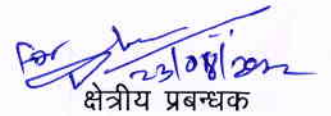 For
23/08/2022
क्षेत्रीय प्रबन्धक